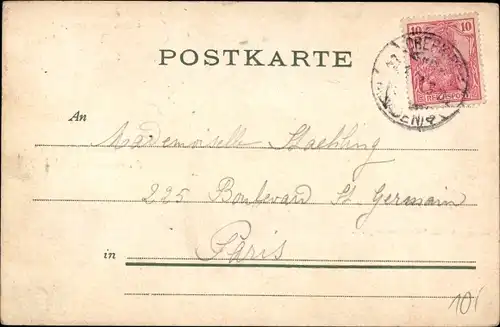 POSTKARTE
10 10
An
Mademoiselle Staehling
225 Boulevard St. Germain
in Paris
10